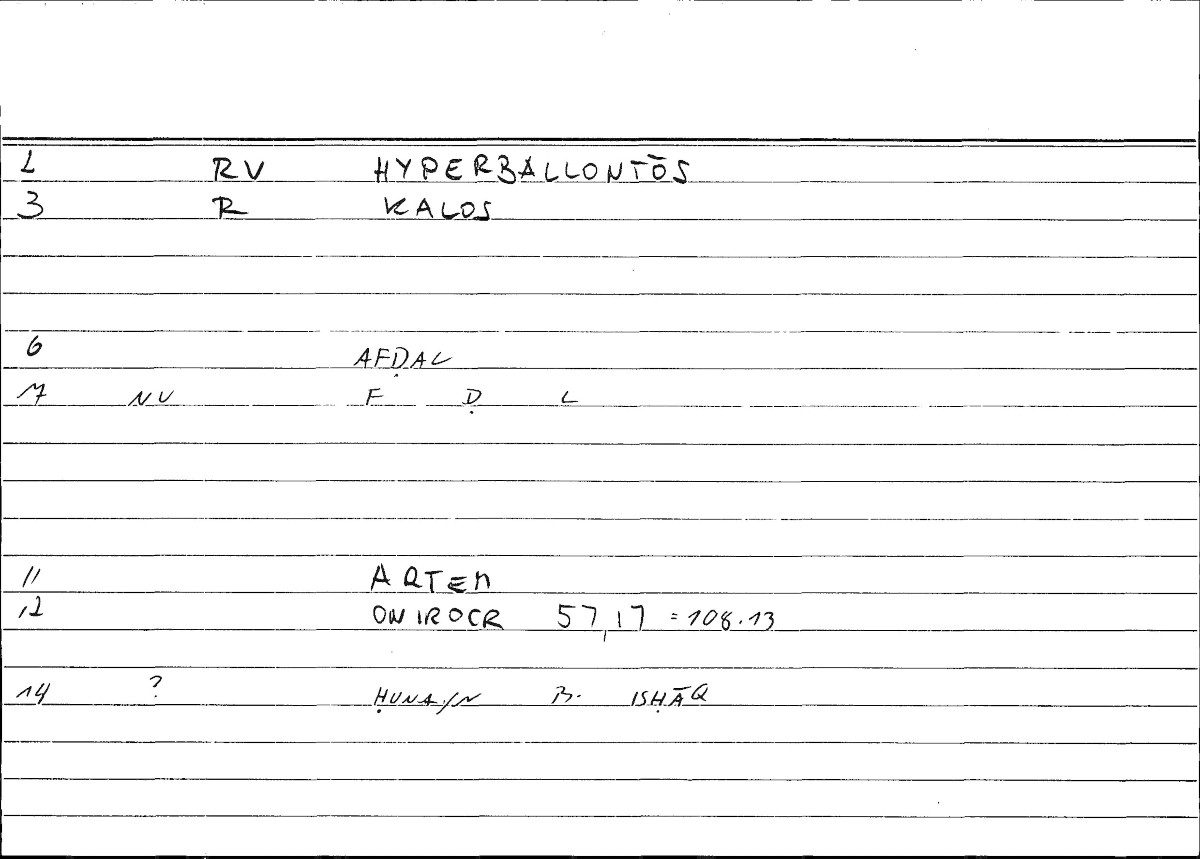 2 RV HYPERBALLONTŌS
3 R KALOS
6 AFḌAL
7 NV F Ḍ L
11 ARTEM
12 ONIROCR 57,17 = 108.13
14 ? ḤUNAYN B. ISḤĀQ